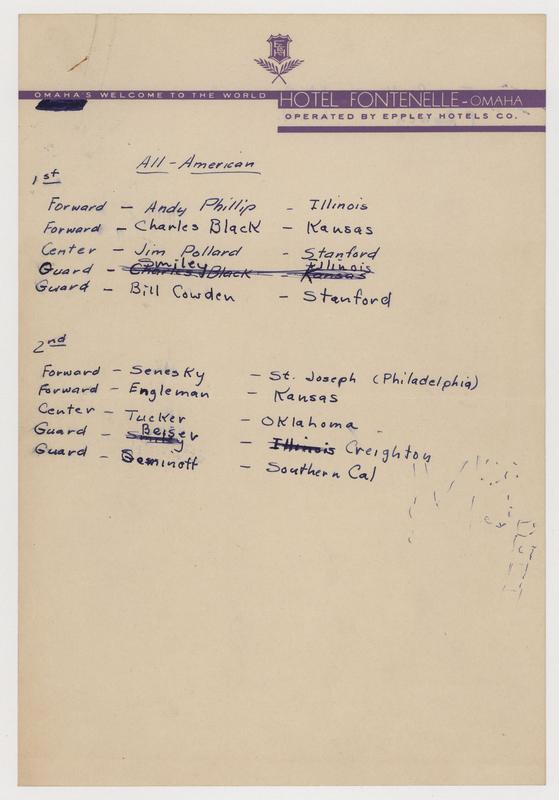 OMAHA'S WELCOME TO THE WORLD
HOTEL FONTENELLE-OMAHA
OPERATED BY EPPLEY HOTELS CO.
All-American
1st
Forward - Andy Phillip - Illinois
Forward - Charles Black - Kansas
Center - Jim Pollard - Stanford
Smiley Illinois
Guard - Charles Black - Kansas
Guard - Bill Cowden - Stanford
2nd
Forward - Senesky - St. Joseph (Philadelphia)
Forward - Engleman - Kansas
Center - Tucker - Oklahoma
Beiser
Guard - Smiley - Illinois Creighton
Guard - Seminoff - Southern Cal